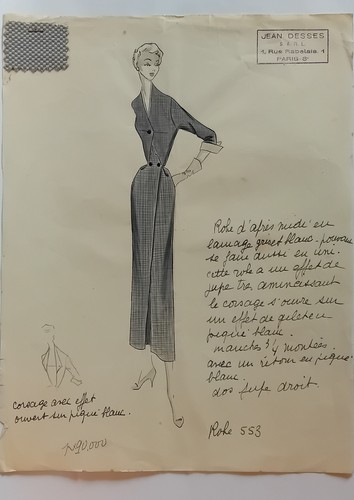 JEAN DESSES
S.A.R.L
1, Rue Rabelais 1
PARIS-8e
Robe d'après midi en
lainage gris et blanc - pouvant
se faire aussi en uni.
cette robe a un effet de
jupe très amincissant
le corsage s'ouvre sur
un effet de gilet en
piqué blanc.
manches 3/4 montées
avec un retour en piqué
blanc
dos jupe droit
corsage avec effet
ouvert sur piqué blanc.
90.000
Robe 553